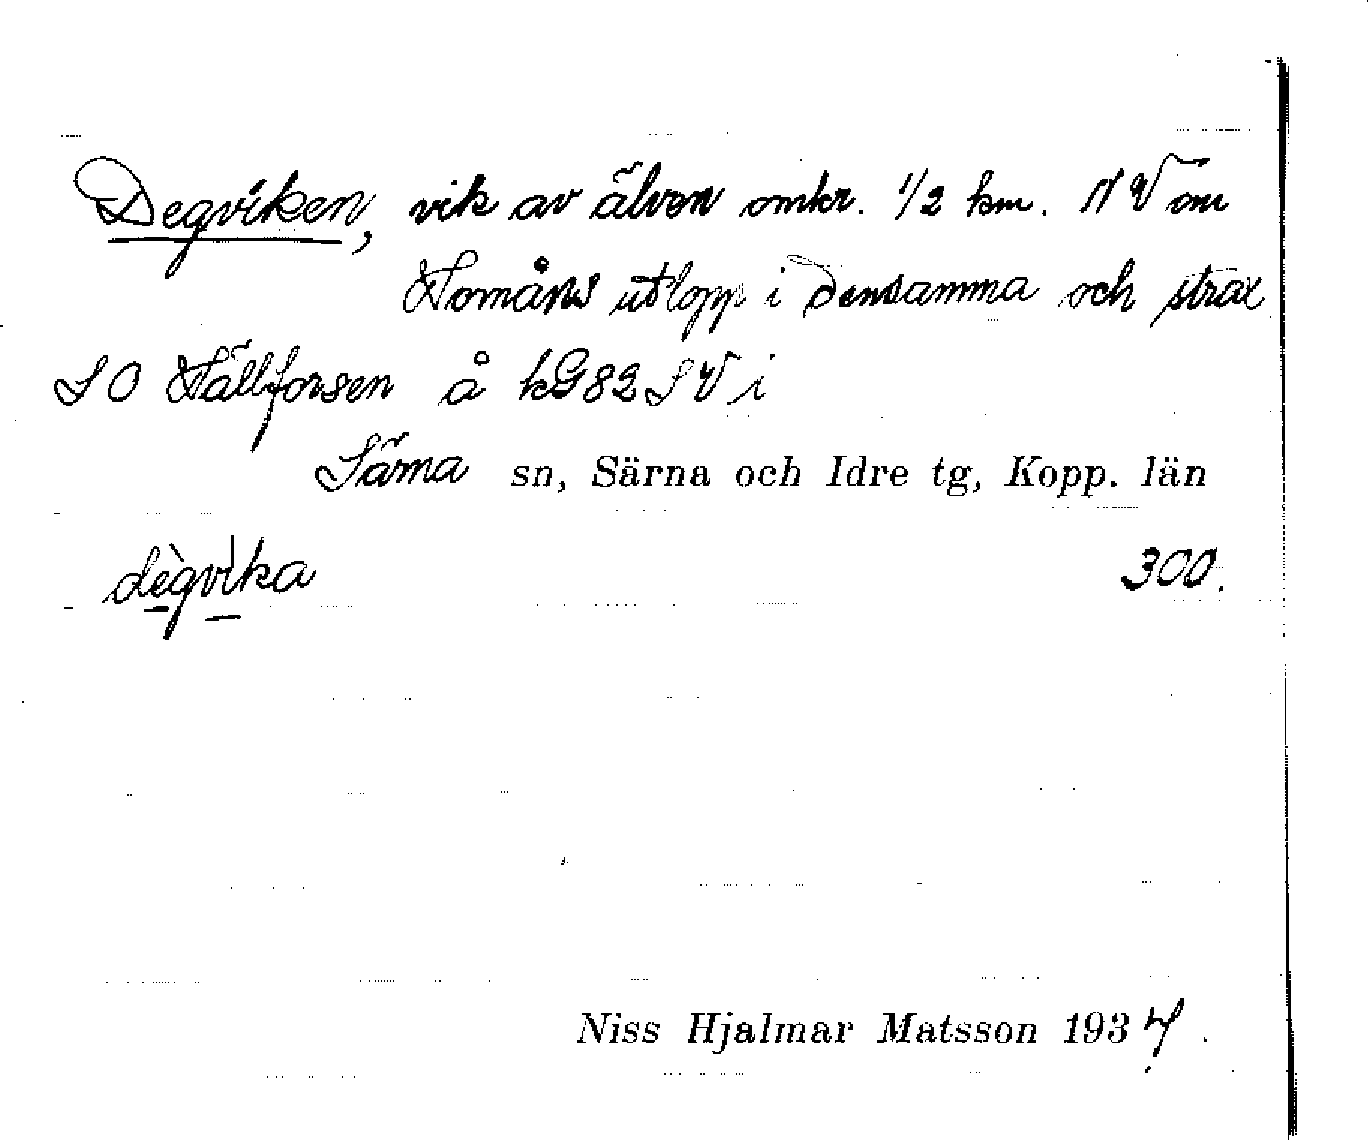 Degviken, vik av älven omkr. 1/2 km. NV om
Tomåns utlopp i densamma och strax
SO Hällforsen å kG82SV i
Särna sn, Särna och Idre tg, Kopp. län
dègvika 300.
Niss Hjalmar Matsson 1937.